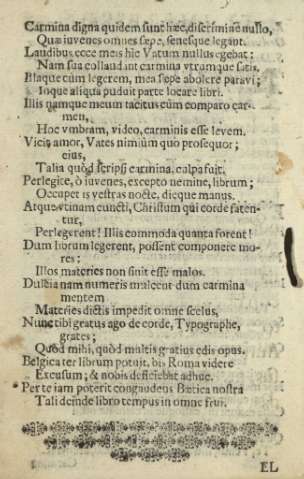 Carmina digna quidem sunt hæc, discrimine nullo,
Quæ iuvenes omnes sæpe, senesque legant.
Laudibus ecce meis hic Vatum nullus egebat:
Nam sua collaudant carmina vtrumque satis.
Illaque cùm legerem, mea sæpe abolere paravi;
Inque aliqua puduit parte locare libri.
Illis namque meum tacitus cùm comparo car-
men,
Hoc vmbram, video, carminis esse levem.
Vicit amor, Vates nimiùm quo prosequor;
eius,
Talia quòd scripsi carmina, culpa fuit.
Perlegite, ô iuvenes, excepto nemine, librum;
Occupet is vestras nocte, dieque manus.
Atque vtinam cuncti, Christum qui corde faten-
tur,
Perlegerent! Illis commoda quanta forent!
Dum librum legerent, possent componere mo-
res;
Illos materies non sinit esse malos.
Dulcia nam numeris mulcent dum carmina
mentem
Materies dictis impedit omne scelus,
Nunc tibi gratus ago de corde, Typographe,
grates;
Quòd mihi, quòd multis gratius edis opus.
Belgica ter librum potuit, bis Roma videre
Excusum; & nobis deficiebat adhuc.
Per te iam poterit congaudens Bætica nostra
Tali deinde libro tempus in omne frui.
EL